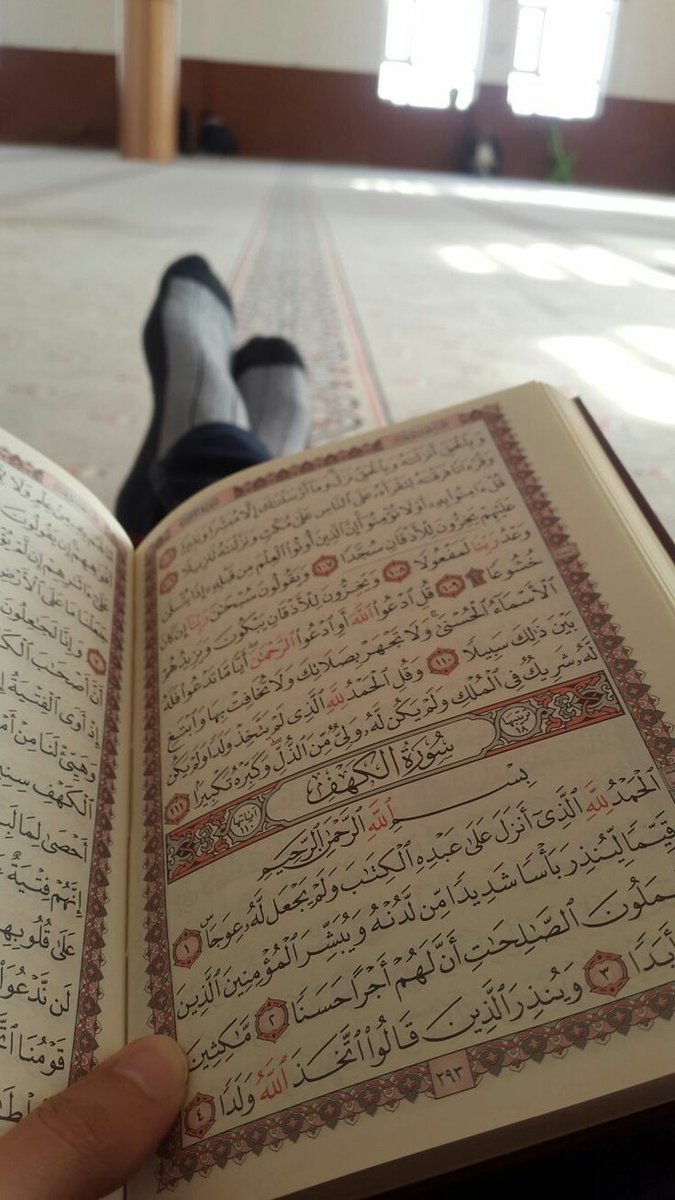 وَبِٱلْحَقِّ أَنزَلْنَٰهُ وَبِٱلْحَقِّ نَزَلَ وَمَآ أَرْسَلْنَٰكَ إِلَّا مُبَشِّرًا وَنَذِيرًا ١٠٥
وَقُرْءَانًا فَرَقْنَٰهُ لِتَقْرَأَهُۥ عَلَى ٱلنَّاسِ عَلَىٰ مُكْثٍ وَنَزَّلْنَٰهُ تَنزِيلًا ١٠٦
قُلْ ءَامِنُوا۟ بِهِۦٓ أَوْ لَا تُؤْمِنُوٓا۟ إِنَّ ٱلَّذِينَ أُوتُوا۟ ٱلْعِلْمَ مِن قَبْلِهِۦٓ إِذَا يُتْلَىٰ
عَلَيْهِمْ يَخِرُّونَ لِلْأَذْقَانِ سُجَّدًا ١٠٧ وَيَقُولُونَ سُبْحَٰنَ رَبِّنَآ إِن كَانَ
وَعْدُ رَبِّنَا لَمَفْعُولًا ١٠٨ وَيَخِرُّونَ لِلْأَذْقَانِ يَبْكُونَ وَيَزِيدُهُمْ
خُشُوعًا ۩ ١٠٩ قُلِ ٱدْعُوا۟ ٱللَّهَ أَوِ ٱدْعُوا۟ ٱلرَّحْمَٰنَ أَيًّا مَّا تَدْعُوا۟ فَلَهُ
ٱلْأَسْمَآءُ ٱلْحُسْنَىٰ وَلَا تَجْهَرْ بِصَلَاتِكَ وَلَا تُخَافِتْ بِهَا وَٱبْتَغِ
بَيْنَ ذَٰلِكَ سَبِيلًا ١١٠ وَقُلِ ٱلْحَمْدُ لِلَّهِ ٱلَّذِى لَمْ يَتَّخِذْ وَلَدًا وَلَمْ يَكُن
لَّهُۥ شَرِيكٌ فِى ٱلْمُلْكِ وَلَمْ يَكُن لَّهُۥ وَلِىٌّ مِّنَ ٱلذُّلِّ وَكَبِّرْهُ تَكْبِيرًۢا ١١١
ترتيبها ١٨ سُورَةُ ٱلْكَهْفِ آياتها ١١٠
بِسْمِ ٱللَّهِ ٱلرَّحْمَٰنِ ٱلرَّحِيمِ
ٱلْحَمْدُ لِلَّهِ ٱلَّذِىٓ أَنزَلَ عَلَىٰ عَبْدِهِ ٱلْكِتَٰبَ وَلَمْ يَجْعَل لَّهُۥ عِوَجَاۜ ١
قَيِّمًا لِّيُنذِرَ بَأْسًا شَدِيدًا مِّن لَّدُنْهُ وَيُبَشِّرَ ٱلْمُؤْمِنِينَ ٱلَّذِينَ
يَعْمَلُونَ ٱلصَّٰلِحَٰتِ أَنَّ لَهُمْ أَجْرًا حَسَنًا ٢ مَّٰكِثِينَ
أَبَدًا ٣ وَيُنذِرَ ٱلَّذِينَ قَالُوا۟ ٱتَّخَذَ ٱللَّهُ وَلَدًا ٤
٢٩٣
بِهِۦ مِنْ عِلْمٍ وَلَا
أَفْوَٰهِهِمْ إِن يَقُولُونَ
عَلَىٰٓ ءَاثَٰرِهِمْ إِن لَّمْ
جَعَلْنَا مَا عَلَى ٱلْأَرْضِ
٧ وَإِنَّا لَجَٰعِلُونَ
أَنَّ أَصْحَٰبَ
إِذْ أَوَى ٱلْفِتْيَةُ
وَهَيِّئْ لَنَا مِنْ
ٱلْكَهْفِ
أَحْصَىٰ لِمَا
إِنَّهُمْ فِتْيَةٌ
عَلَىٰ
لَن
قَوْمُنَا